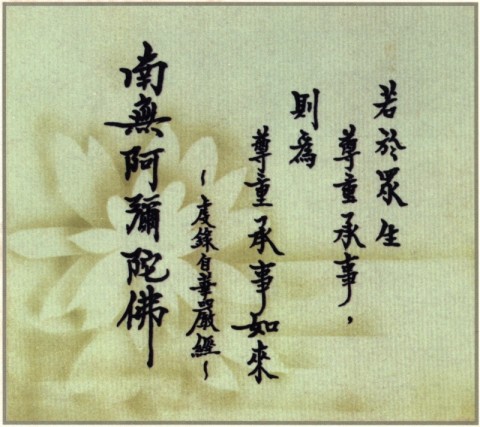 若於眾生
尊重承事，
則為
尊重承事如來
～虔錄自華嚴經～
南無阿彌陀佛